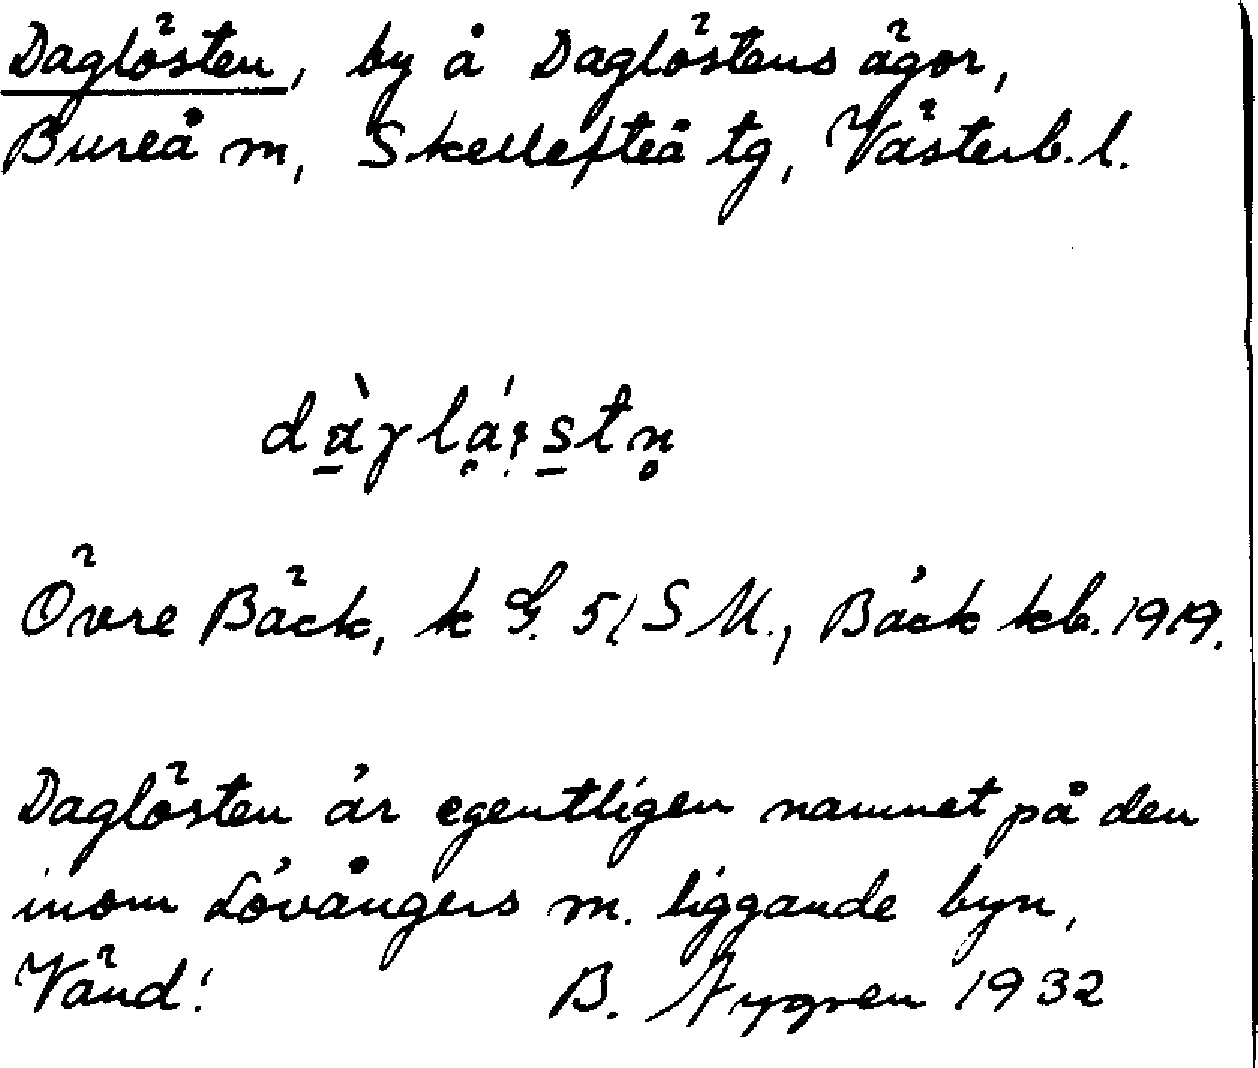 Daglösten, by å Daglöstens ägor,
Bureå m, Skellefteå tg, Västerb. l.
Övre Bäck, k G. 51 S M., Bäck kb. 1919.
Daglösten är egentligen namnet på den
inom Lövångers m. liggande byn,
Vänd! B. Nygren 1932